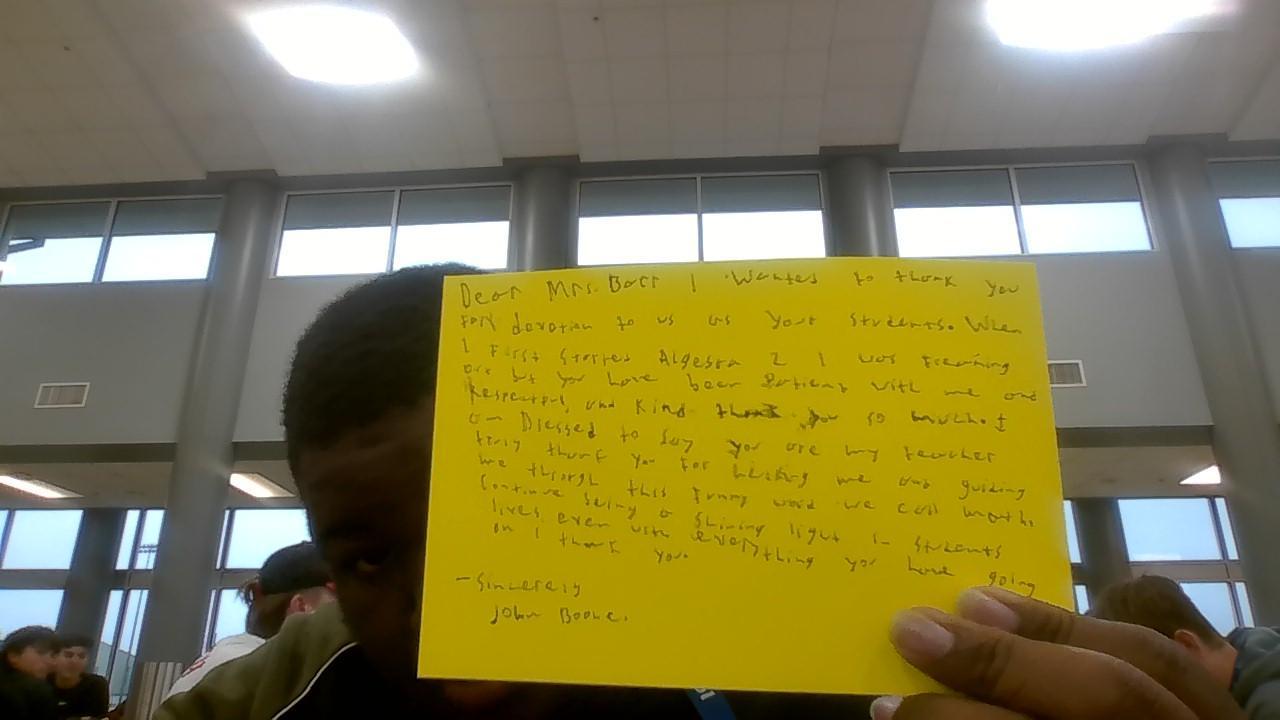 Dear Mrs. Barr I wanted to thank you
for devotion to us as your students. When
I first started Algebra 2 I was freaking
out but you have been patient with me and
Respectful, and kind thank you so much. I
am Blessed to say you are my teacher
truly thank you for helping me and guiding
me through this funny word we call math.
Continue being a shining light in students
lives even with everything you have going
on I thank you.
- Sincerely
John Boone.